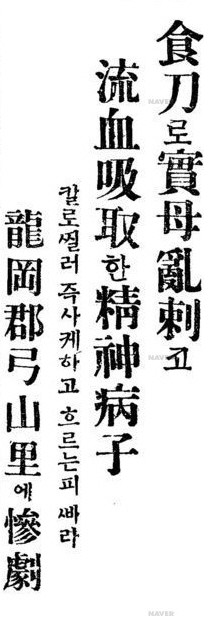 食刀로實母亂刺고
流血吸取한精神病子
칼로찔러 즉사케하고 흐르는피 ᄲᅡ라
龍岡郡弓山里에慘劇
NAVER
NAVER
NAVER
NAVER